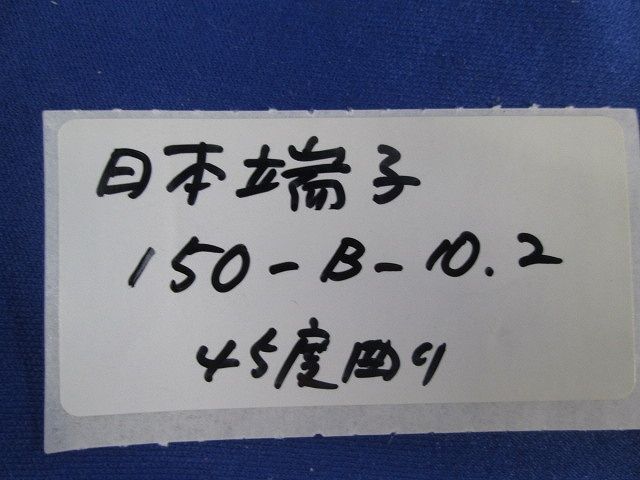 日本端子
150-B-10.2
45度曲り